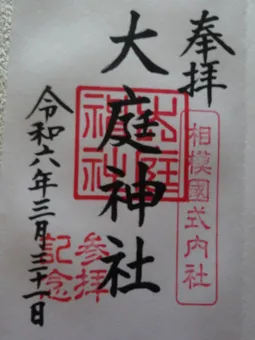 奉拝
相模國式内社
大庭神社
大庭神社
参拝記念
令和六年三月三十一日